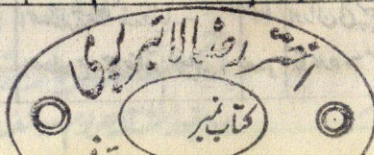 اختر رضا لائبریری
کتاب نمبر